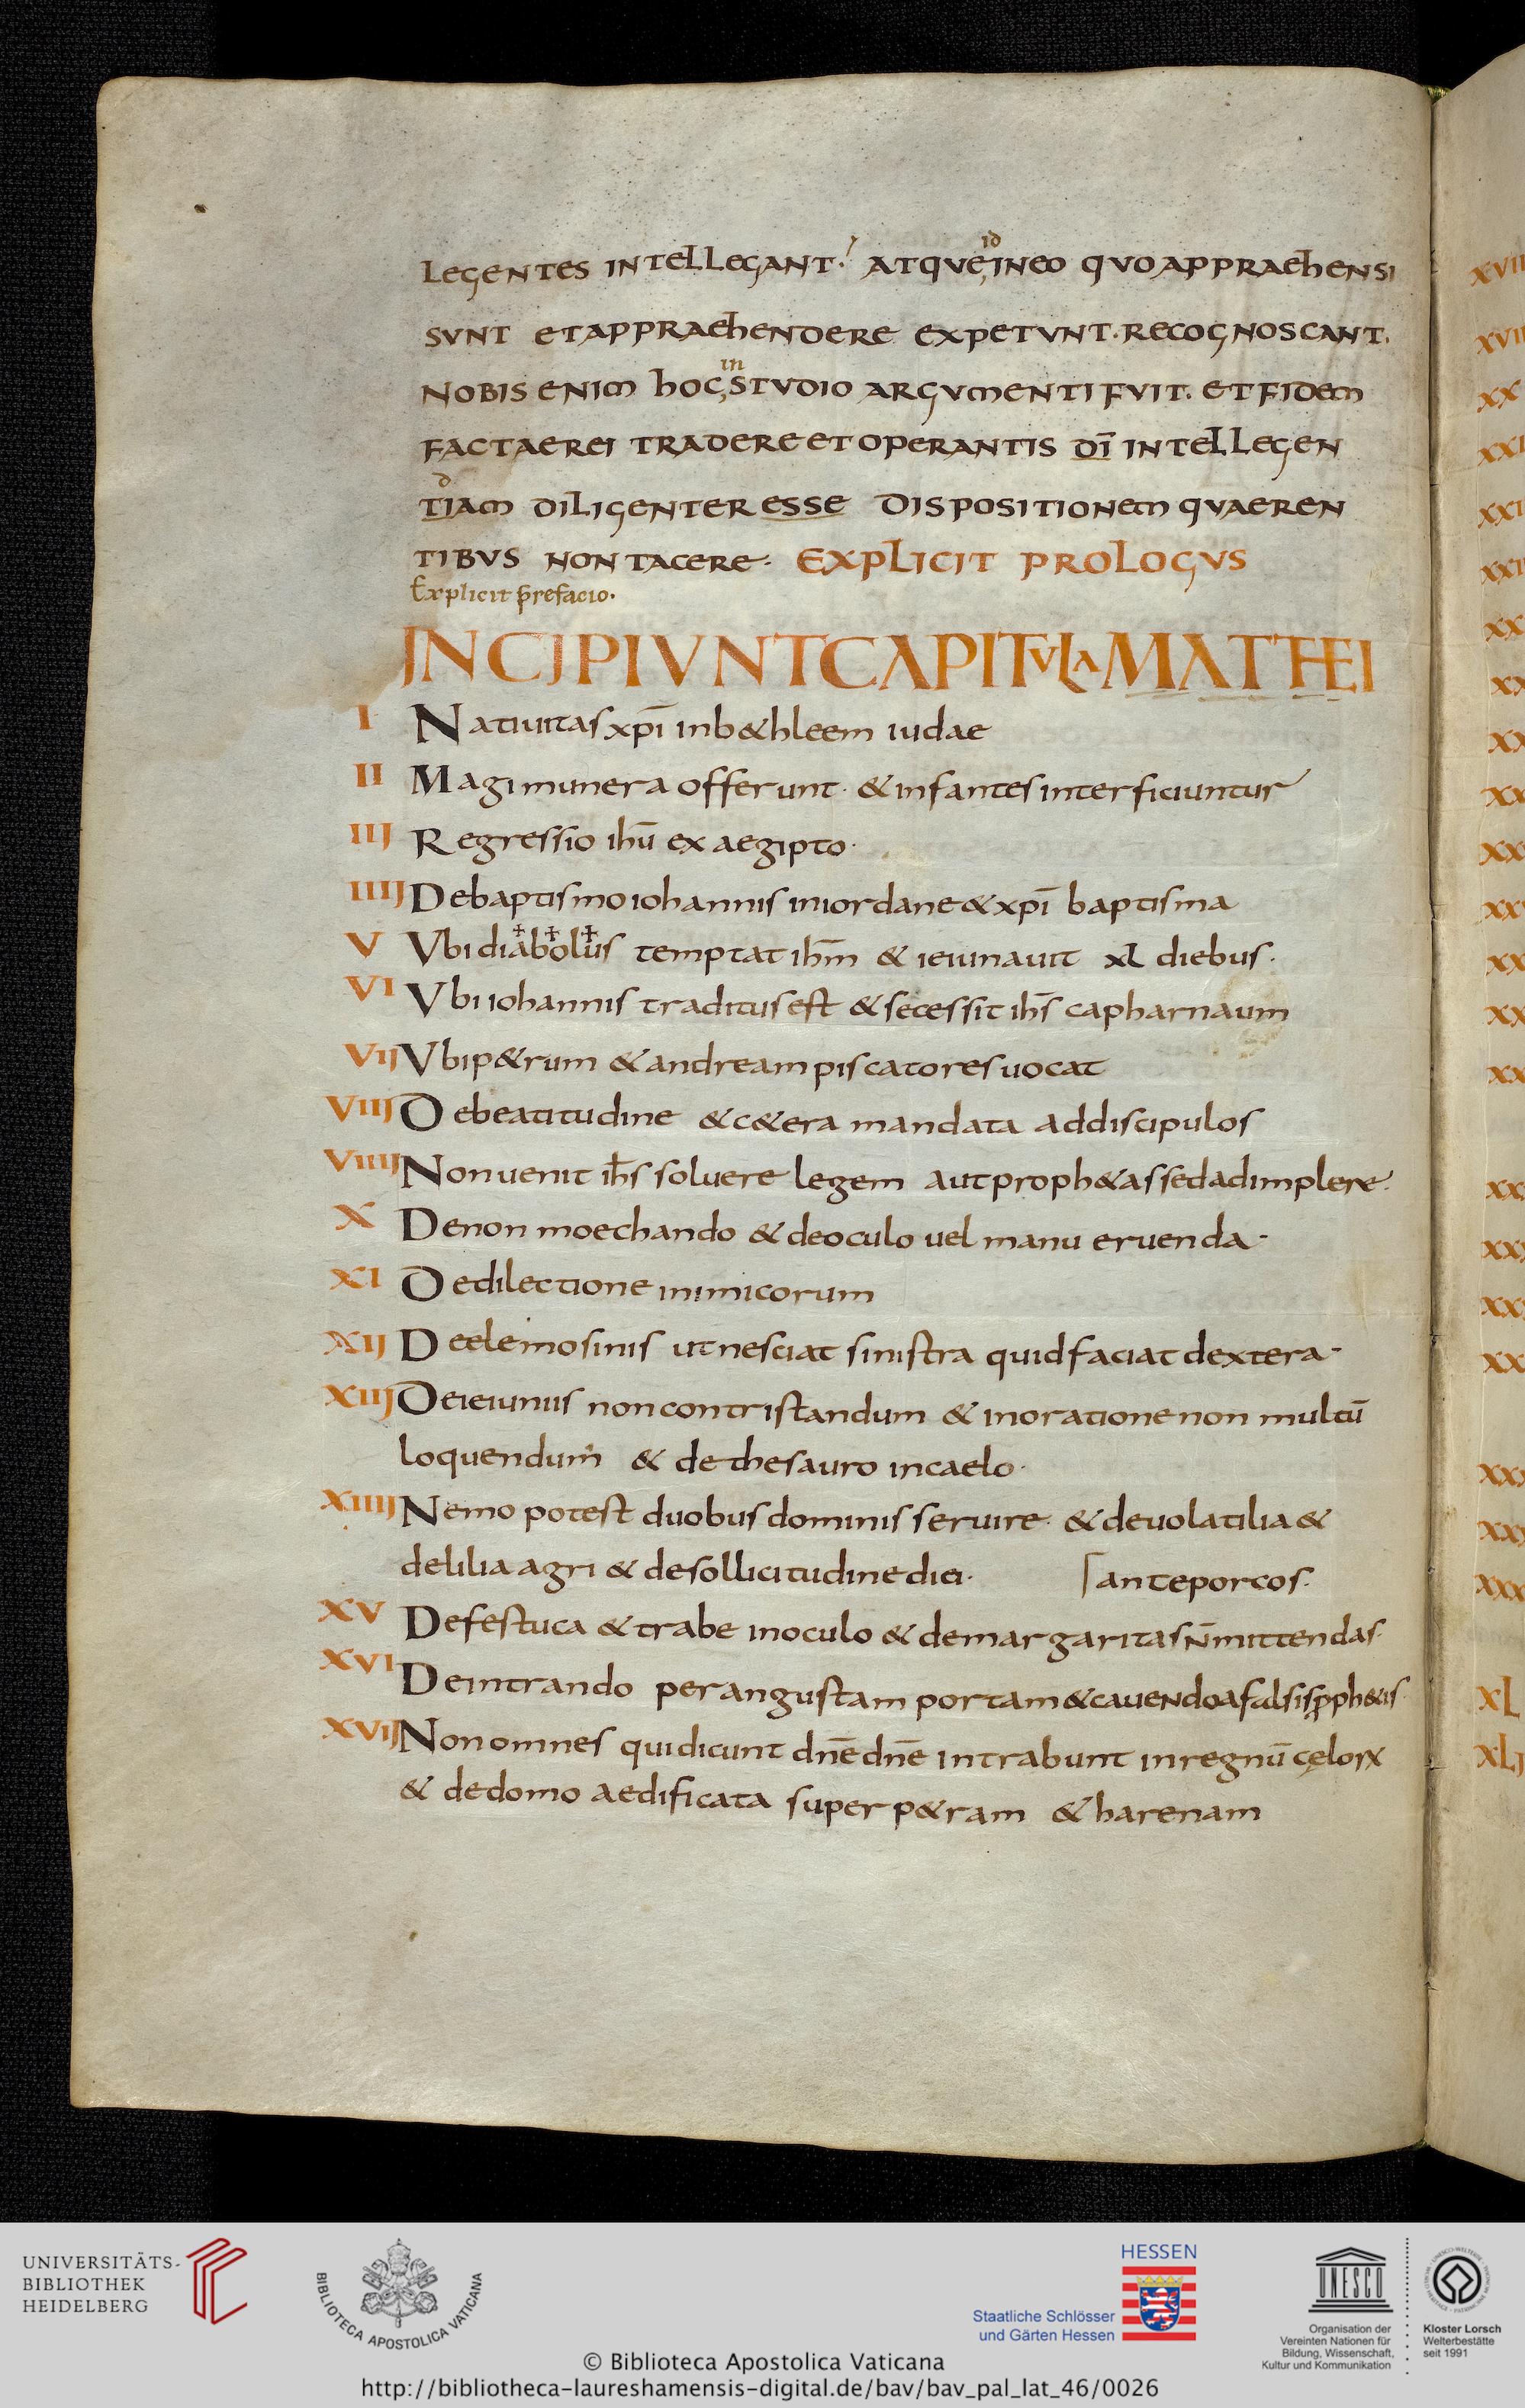 LEGENTES INTELLEGANT. ATQUE id IN EO QUO APPRAEHENSI
SUNT ET APPRAEHENDERE EXPETUNT. RECOGNOSCANT.
NOBIS ENIM HOC in STUDIO ARGUMENTI FUIT. ET FIDEM
FACTAE REI TRADERE ET OPERANTIS DĪ INTELLEGEN
TIAM DILIGENTER ESSE DISPOSITIONEM QUAEREN
TIBUS NON TACERE. EXPLICIT PROLOGUS
Explicit p̄refacio.
INCIPIUNT CAPITULA MATTHEI
I Natiuitas xpī in b&hleem iudae
II Magi munera offerunt. & infantes interficiuntur
III Regressio ihū ex aegipto.
IIII De baptismo iohannis in iordane & xpī baptisma
V Vbi diabolus temptat ihm̄ & ieiunauit xl diebus.
VI Vbi iohannis traditus est & secessit ihs̄ capharnaum
VII Vbi p&rum & andream piscatores uocat
VIII De beatitudine & c&era mandata ad discipulos
VIIII Non uenit ihs̄ soluere legem aut proph&as sed adimplere.
X De non moechando & de oculo uel manu eruenda.
XI De dilectione inimicorum
XII De elemosinis ut nesciat sinistra quid faciat dextera.
XIII De ieiuniis non contristandum & in oratione non multū
loquendum & de thesauro in caelo.
XIIII Nemo potest duobus dominis seruire. & de uolatilia &
de lilia agri & de sollicitudine diei.
ante porcos.
XV De festuca & trabe in oculo & de margaritas n̄ mittendas.
XVI De intrando per angustam portam & cauendo a falsis pph&is.
XVII Non omnes qui dicunt dn̄e dn̄e intrabunt in regnū cęloꝝ
& de domo aedificata super p&ram & harenam
XL
XLI
UNIVERSITÄTS-
BIBLIOTHEK
HEIDELBERG
BIBLIOTECA APOSTOLICA VATICANA
HESSEN
Staatliche Schlösser
und Gärten Hessen
UNESCO
Organisation der
Vereinten Nationen für
Bildung, Wissenschaft,
Kultur und Kommunikation
Kloster Lorsch
Welterbestätte
seit 1991
© Biblioteca Apostolica Vaticana
http://bibliotheca-laureshamensis-digital.de/bav/bav_pal_lat_46/0026